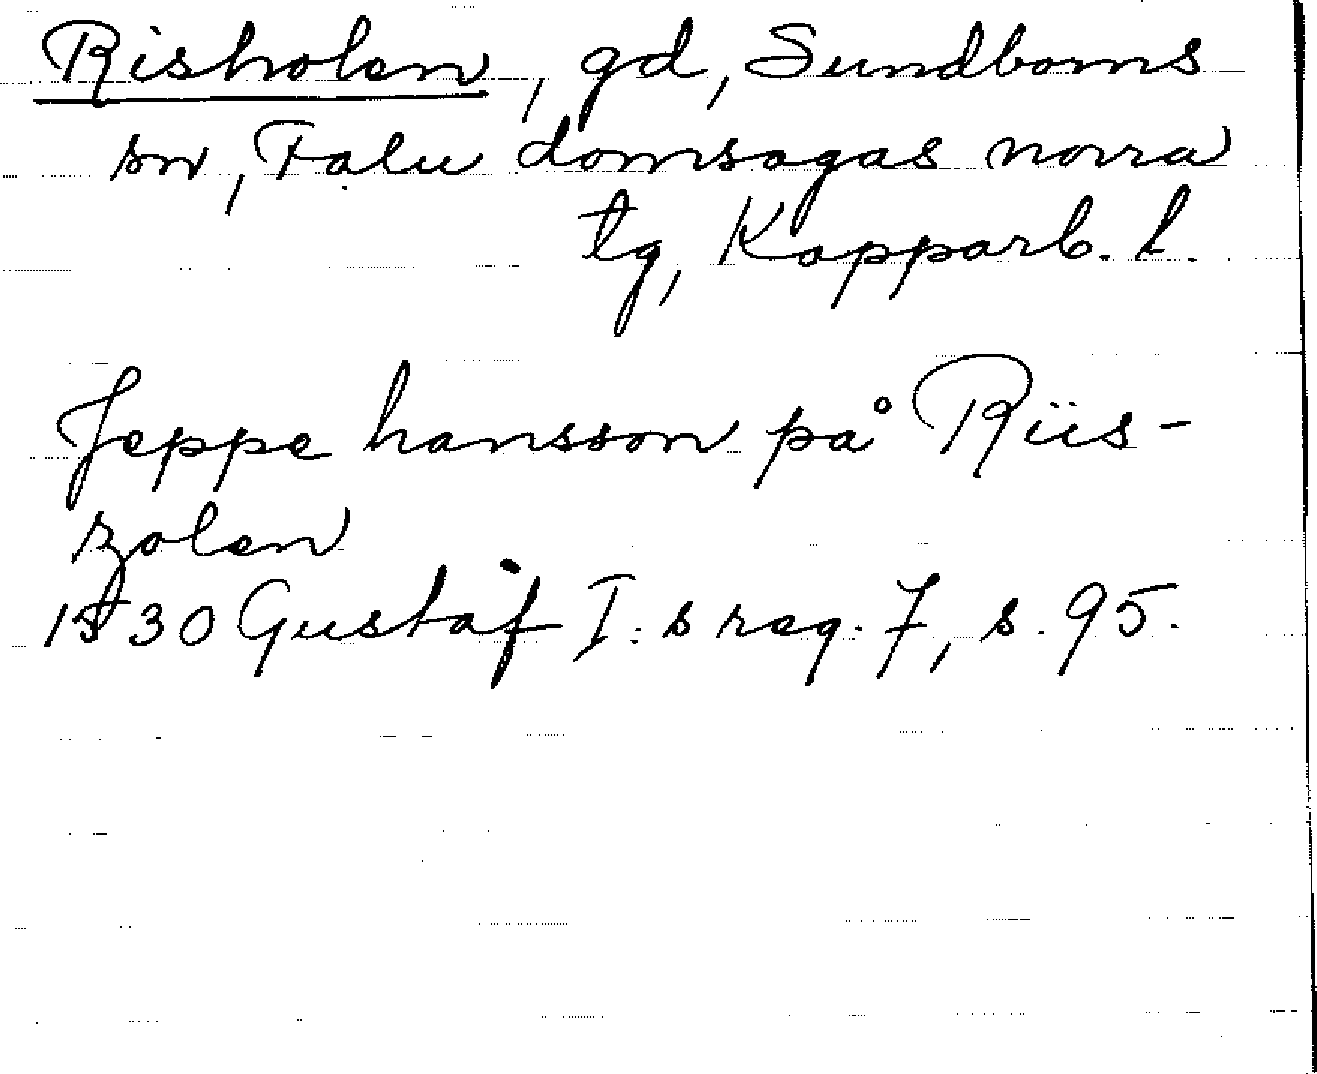 Risholen, gd, Sundborns
sn, Falu domsagas norra
tg, Kopparb. l.
Jeppe hansson på Riis-
zolen
1530 Gustaf I:s reg. 7, s. 95.